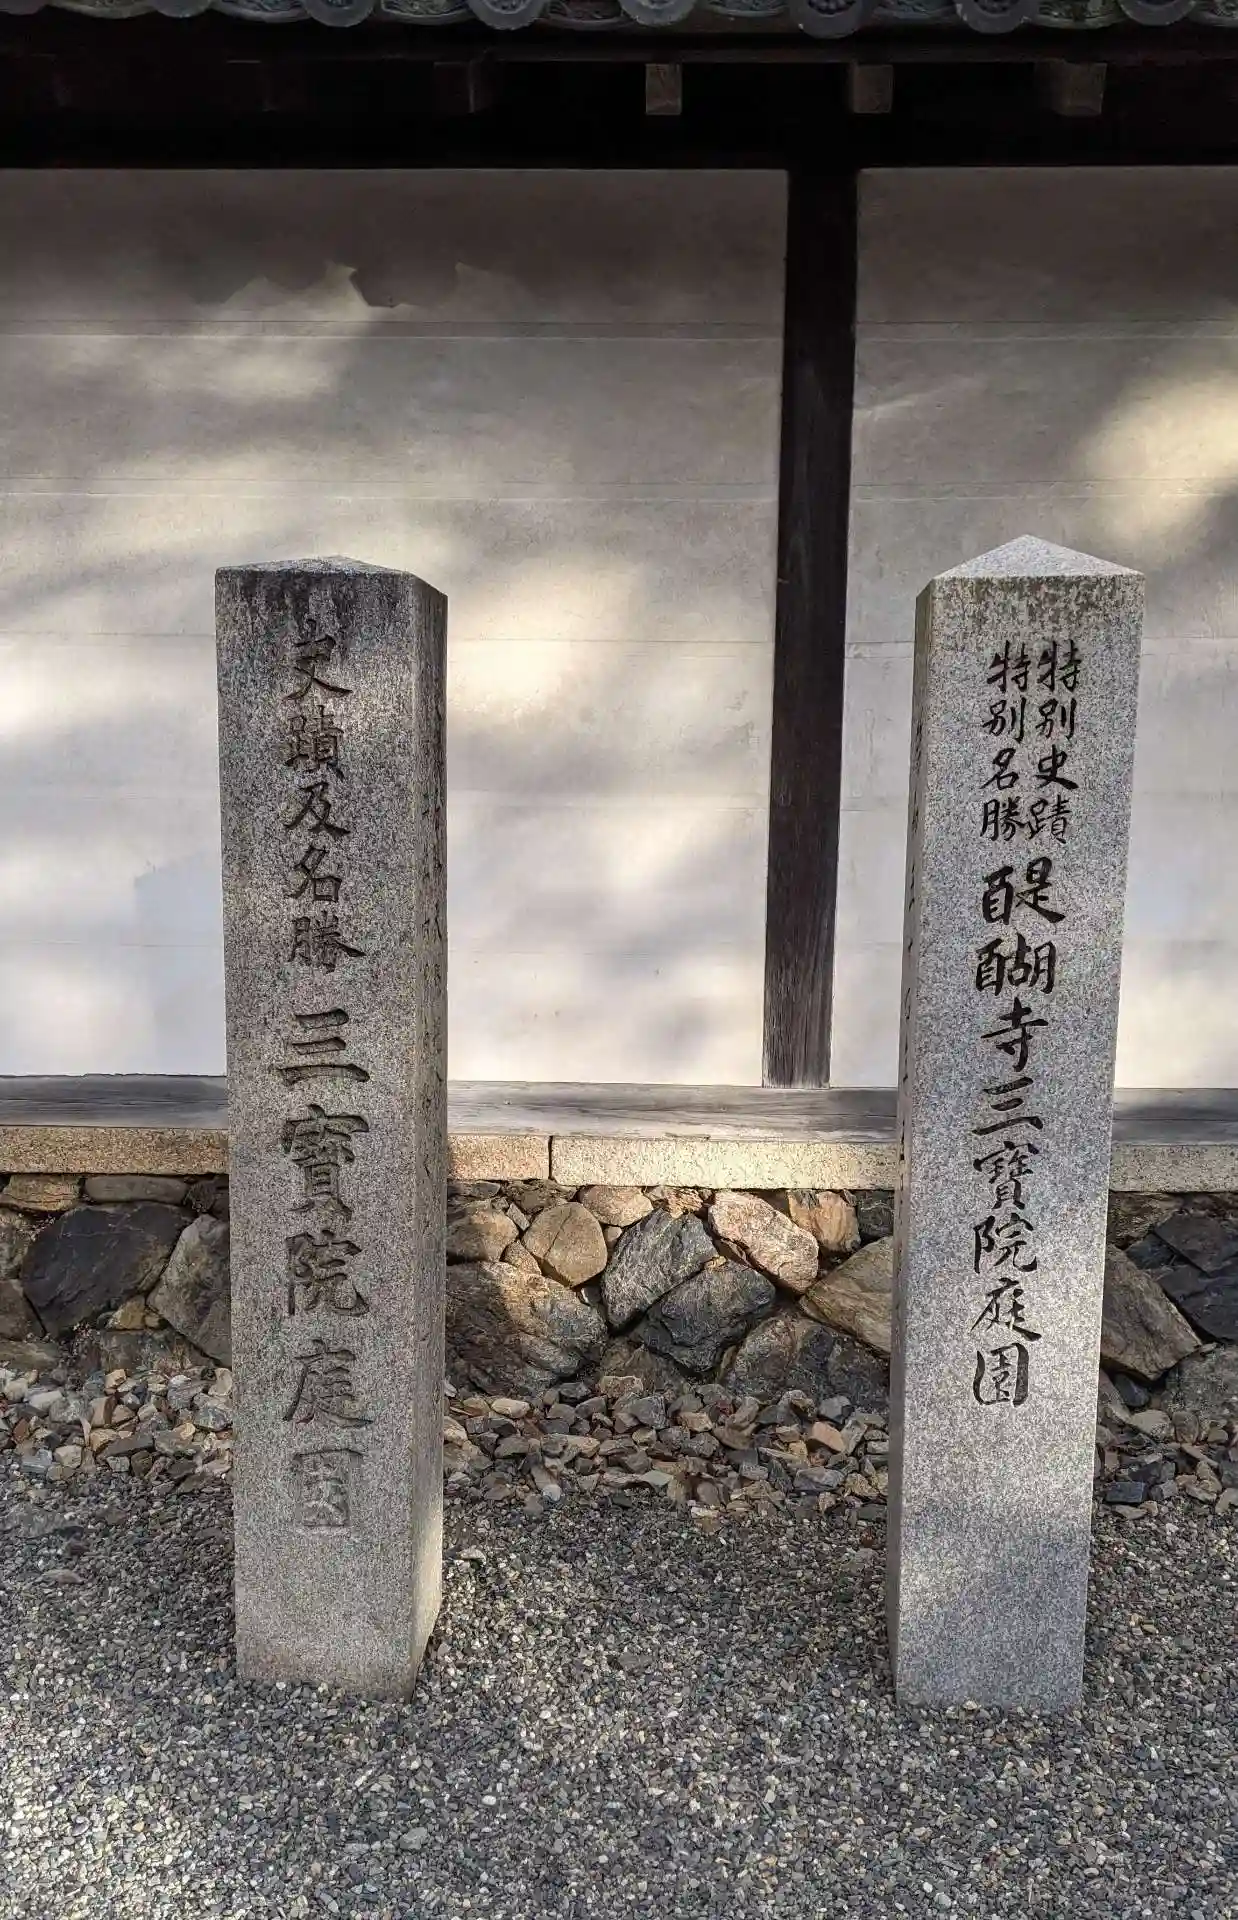 特別史蹟
特別名勝
醍醐寺三寳院庭園
史蹟及名勝三寳院庭園